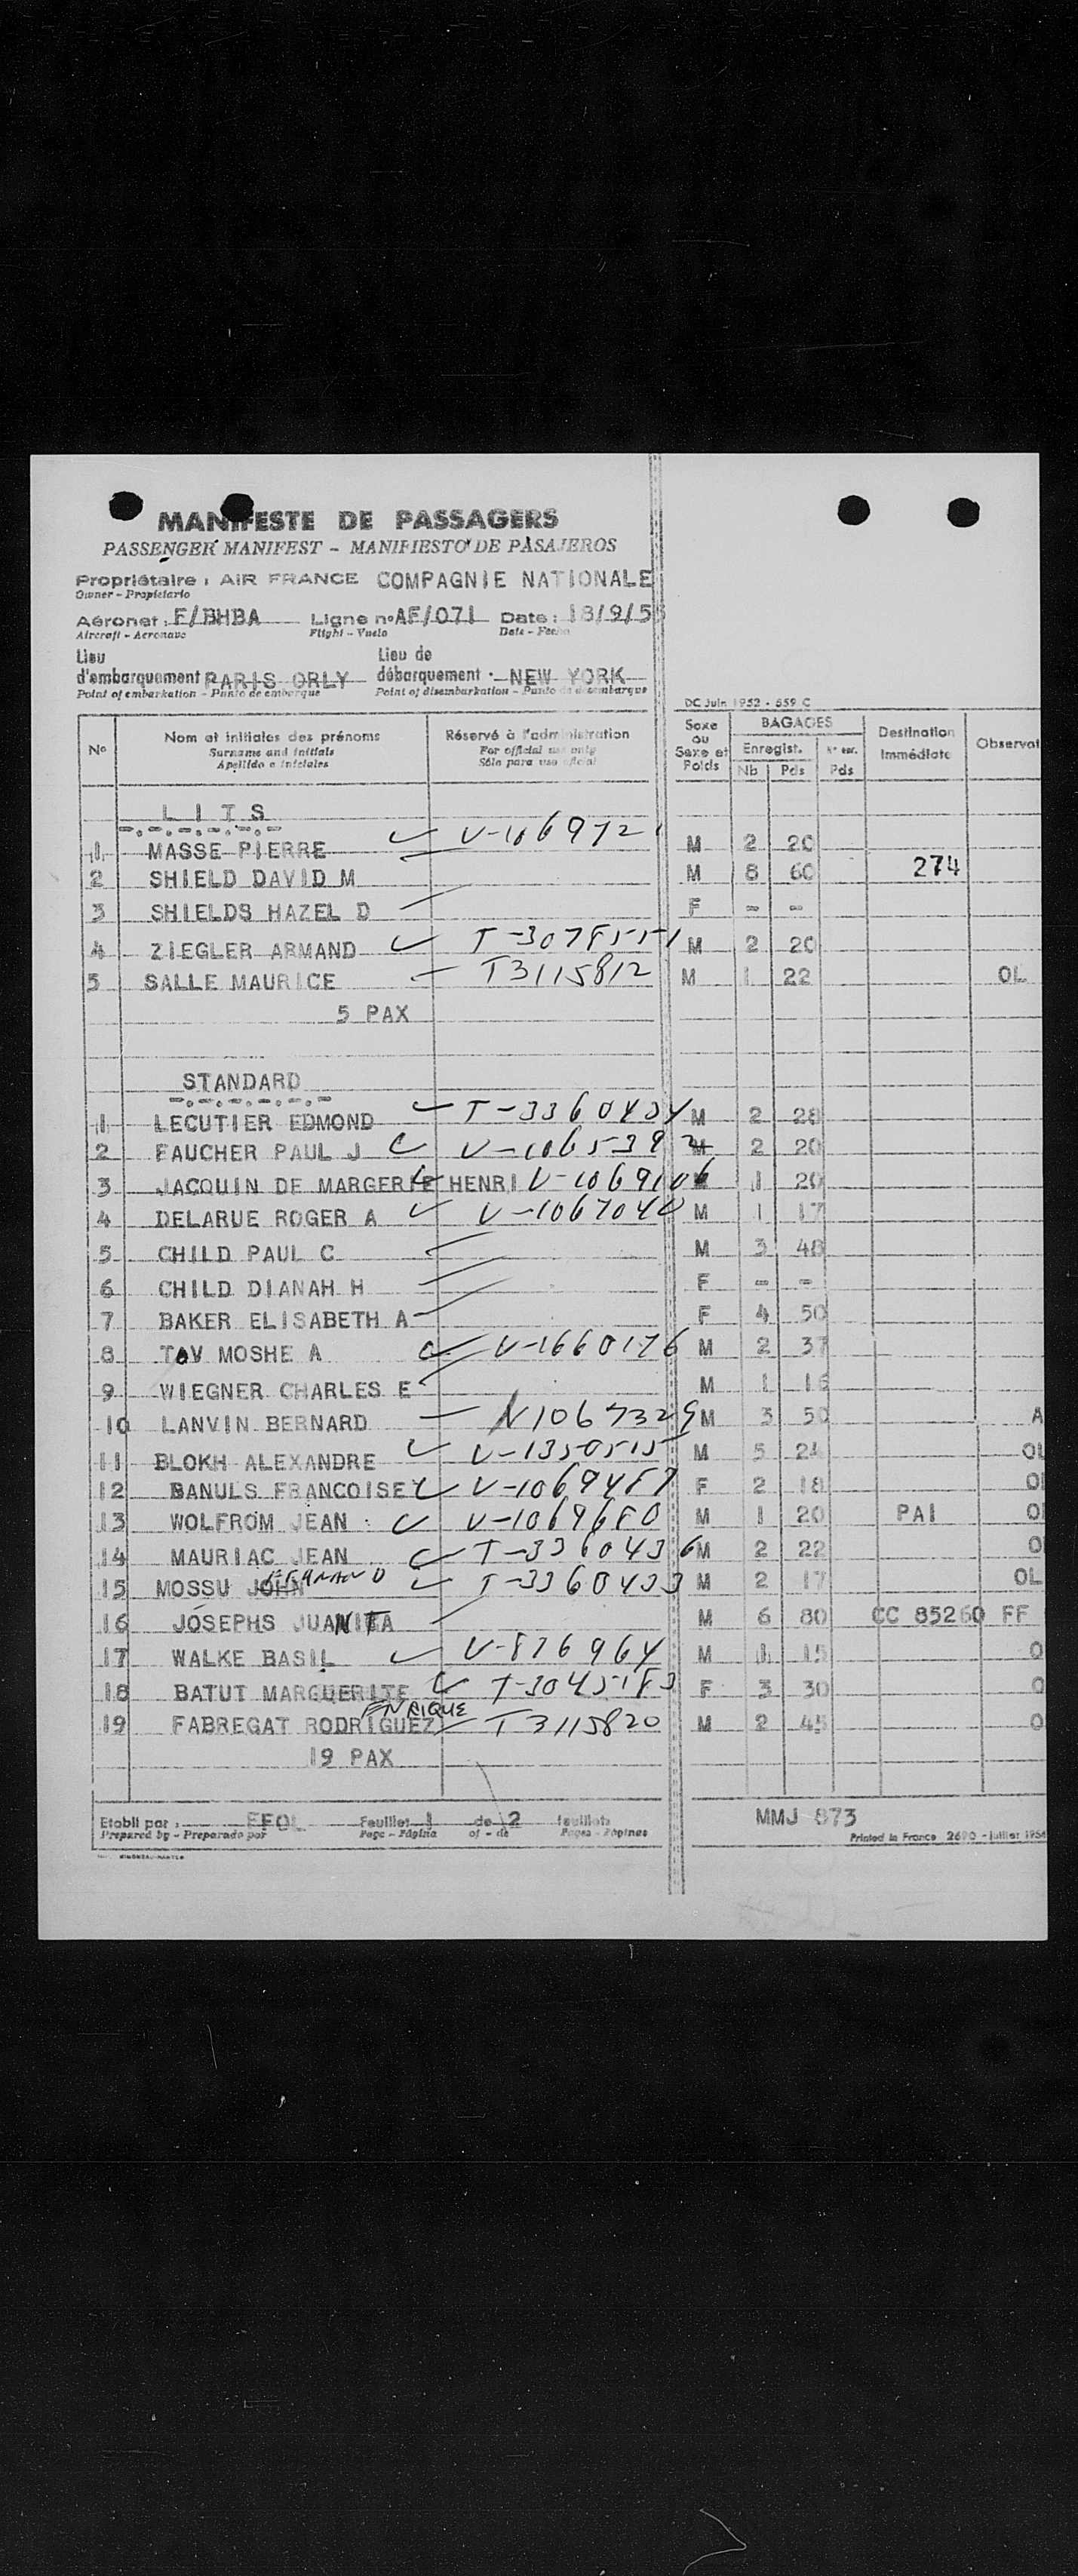 MANIFESTE DE PASSAGERS
PASSENGER MANIFEST - MANIFIESTO DE PASAJEROS
Propriétaire : AIR FRANCE COMPAGNIE NATIONALE
Owner - Propietario
Aéronef : F/BHBA Ligne n° AF/071 Date : 18/9/55
Aircraft - Aeronave Flight - Vuelo Date - Fecha
Lieu d'embarquement PARIS ORLY Lieu de débarquement - NEW YORK
Point of embarkation - Punto de embarque Point of disembarkation - Punto de desembarque
DC Juin 1952 - 659 C
N° Nom et initiales des prénoms Réservé à l'administration Sexe ou Sexe et Poids BAGAGES Enregist. Nb Pds N° enr. Pds Destination immédiate Observat
Surname and initials For official use only
Apellido e iniciales Sólo para uso oficial
LITS
1 MASSE PIERRE V-106972 M 2 20
2 SHIELD DAVID M M 8 60 274
3 SHIELDS HAZEL D F - -
4 ZIEGLER ARMAND T-3078551 M 2 20
5 SALLE MAURICE T3115812 M 1 22 OL
5 PAX
STANDARD
1 LECUTIER EDMOND T-3360434 M 2 28
2 FAUCHER PAUL J V-1065392 M 2 20
3 JACQUIN DE MARGERIE HENRI V-1069106 1 20
4 DELARUE ROGER A V-1067040 M 1 17
5 CHILD PAUL C M 3 48
6 CHILD DIANAH H F - -
7 BAKER ELISABETH A F 4 50
8 TOV MOSHE A V-1660176 M 2 37
9 WIEGNER CHARLES E M 1 16
10 LANVIN BERNARD V1067329 M 3 50 A
11 BLOKH ALEXANDRE V-1350515 M 5 24 OL
12 BANULS FRANCOISE V-1069487 F 2 18 O
13 WOLFROM JEAN V-1069680 M 1 20 PAI O
14 MAURIAC JEAN T-3360436 M 2 22 O
15 MOSSU JOHN FERNAND T-3360433 M 2 17 OL
16 JOSEPHS JUANITA M 6 80 CC 85260 FF
17 WALKE BASIL V-876964 M 1 15 O
18 BATUT MARGUERITE T-3045183 F 3 30 O
19 FABREGAT RODRIGUEZ ENRIQUE T3115820 M 2 45 O
19 PAX
Etabli par : EFOL Feuillet 1 de 2 feuillets
Prepared by - Preparado por Page - Página of - de Pages - Páginas
MMJ 873
Printed in France 2690 - juillet 1954